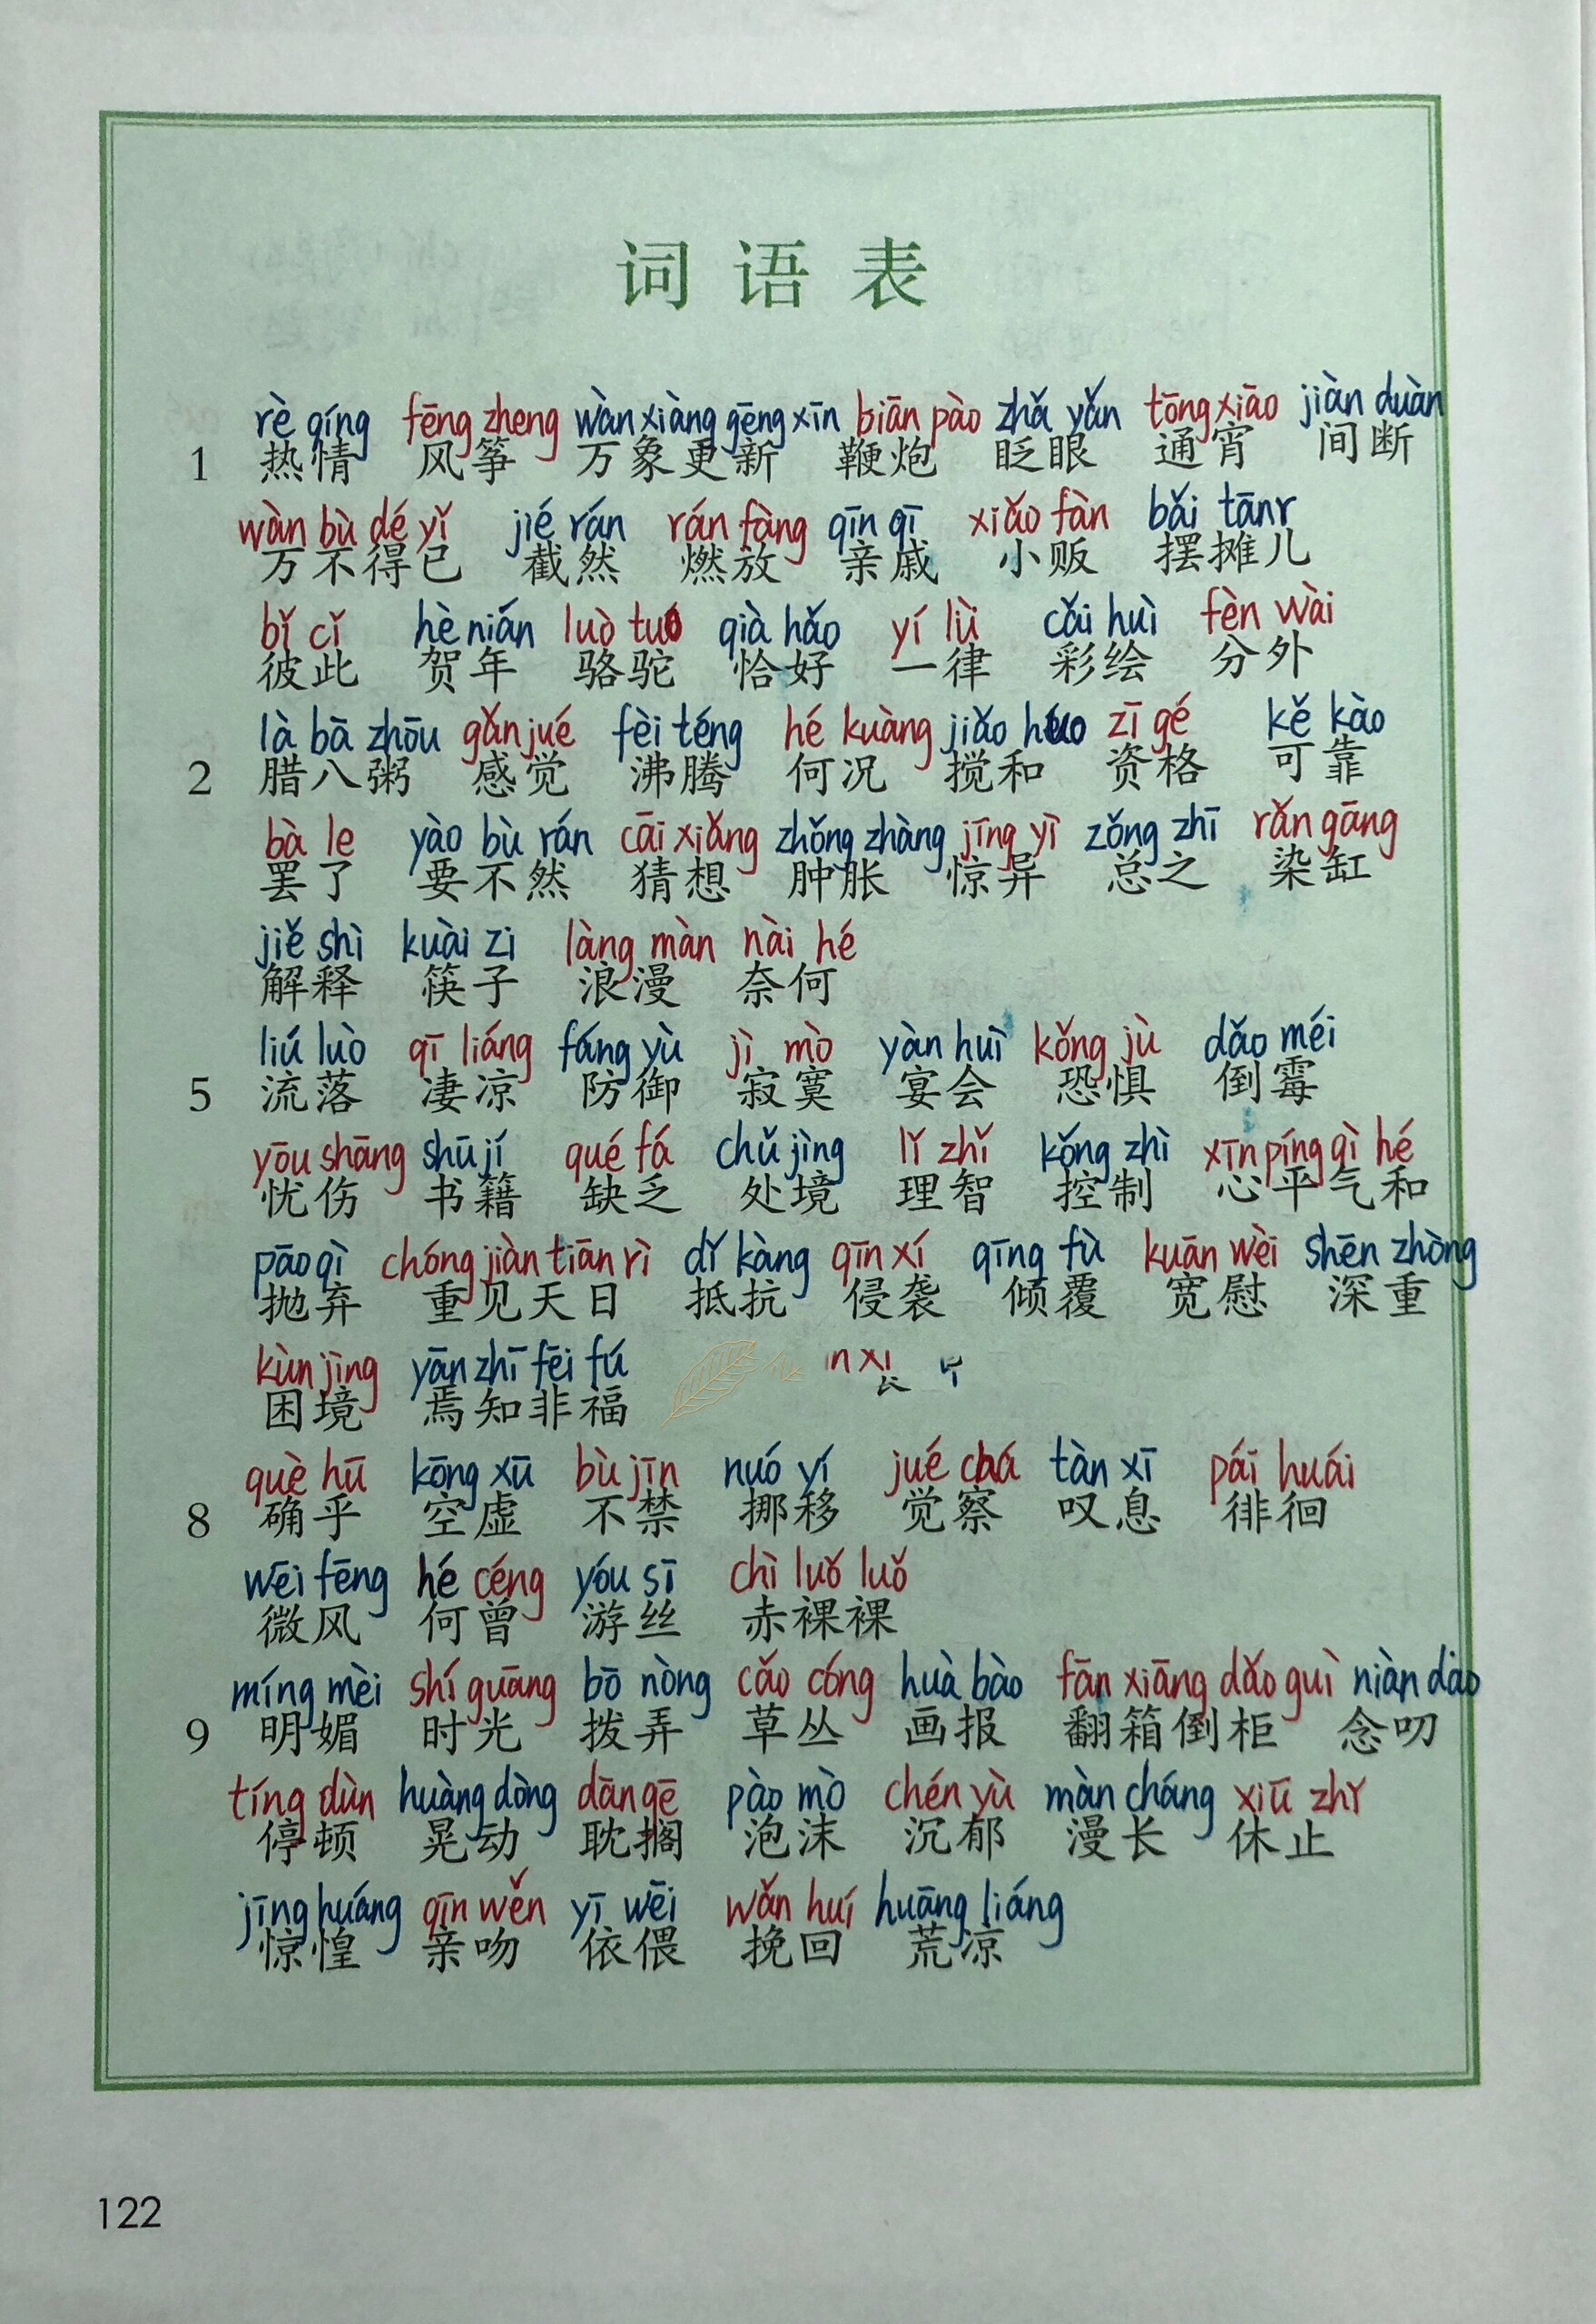 词语表
rè qíng fēng zheng wàn xiàng gēng xīn biān pào zhǎ yǎn tōng xiāo jiàn duàn
1 热情 风筝 万象更新 鞭炮 眨眼 通宵 间断
wàn bù dé yǐ jié rán rán fàng qīn qī xiǎo fàn bǎi tānr
万不得已 截然 燃放 亲戚 小贩 摆摊儿
bǐ cǐ hè nián luò tuó qià hǎo yí lǜ cǎi huì fèn wài
彼此 贺年 骆驼 恰好 一律 彩绘 分外
là bā zhōu gǎn jué fèi téng hé kuàng jiǎo huo zī gé kě kào
2 腊八粥 感觉 沸腾 何况 搅和 资格 可靠
bà le yào bù rán cāi xiǎng zhǒng zhàng jīng yì zǒng zhī rǎn gāng
罢了 要不然 猜想 肿胀 惊异 总之 染缸
jiě shì kuài zi làng màn nài hé
解释 筷子 浪漫 奈何
liú luò qī liáng fáng yù jì mò yàn huì kǒng jù dǎo méi
5 流落 凄凉 防御 寂寞 宴会 恐惧 倒霉
yōu shāng shū jí quē fá chǔ jìng lǐ zhǐ kǒng zhì xīn píng qì hé
忧伤 书籍 缺乏 处境 理智 控制 心平气和
pāo qì chóng jiàn tiān rì dǐ kàng qīn xí qīng fù kuān wèi shēn zhòng
抛弃 重见天日 抵抗 侵袭 倾覆 宽慰 深重
kùn jìng yān zhī fēi fú
困境 焉知非福
què hū kōng xū bù jīn nuó yí jué chá tàn xī pái huái
8 确乎 空虚 不禁 挪移 觉察 叹息 徘徊
wēi fēng hé céng yóu sī chì luǒ luǒ
微风 何曾 游丝 赤裸裸
míng mèi shí guāng bō nòng cǎo cóng huà bào fān xiāng dǎo guì niàn dao
9 明媚 时光 拨弄 草丛 画报 翻箱倒柜 念叨
tíng dùn huàng dòng dān gē pào mò chén yù màn cháng xiū zhǐ
停顿 晃动 耽搁 泡沫 沉郁 漫长 休止
jīng huáng qīn wěn yī wēi wǎn huí huāng liáng
惊惶 亲吻 依偎 挽回 荒凉
122